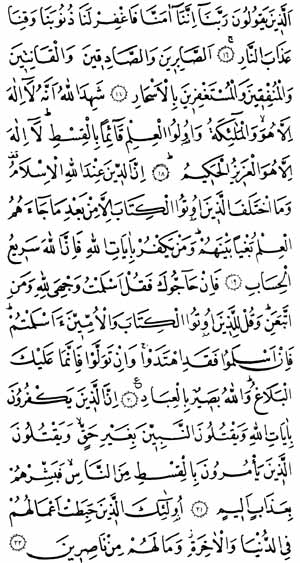 اَلَّذ۪ينَ يَقُولُونَ رَبَّنَٓا اِنَّنَٓا اٰمَنَّا فَاغْفِرْ لَنَا ذُنُوبَنَا وَقِنَا
عَذَابَ النَّارِۚ ﴿١٦﴾ اَلصَّابِر۪ينَ وَالصَّادِق۪ينَ وَالْقَانِت۪ينَ
وَالْمُنْفِق۪ينَ وَالْمُسْتَغْفِر۪ينَ بِالْاَسْحَارِ ﴿١٧﴾ شَهِدَ اللّٰهُ اَنَّهُ لَٓا اِلٰهَ
اِلَّا هُوَۙ وَالْمَلٰٓئِكَةُ وَاُو۬لُوا الْعِلْمِ قَٓائِمًا بِالْقِسْطِۜ لَٓا اِلٰهَ
اِلَّا هُوَ الْعَز۪يزُ الْحَك۪يمُۜ ﴿١٨﴾ اِنَّ الدّ۪ينَ عِنْدَ اللّٰهِ الْاِسْلَامُ۠
وَمَا اخْتَلَفَ الَّذ۪ينَ اُو۫تُوا الْكِتَابَ اِلَّا مِنْ بَعْدِ مَا جَٓاءَهُمُ
الْعِلْمُ بَغْيًا بَيْنَهُمْۜ وَمَنْ يَكْفُرْ بِاٰيَاتِ اللّٰهِ فَاِنَّ اللّٰهَ سَر۪يعُ
الْحِسَابِ ﴿١٩﴾ فَاِنْ حَٓاجُّوكَ فَقُلْ اَسْلَمْتُ وَجْهِيَ لِلّٰهِ وَمَنِ
اتَّبَعَنِۜ وَقُلْ لِلَّذ۪ينَ اُو۫تُوا الْكِتَابَ وَالْاُمِّيّ۪نَ ءَاَسْلَمْتُمْۜ
فَاِنْ اَسْلَمُوا فَقَدِ اهْتَدَوْاۚ وَاِنْ تَوَلَّوْا فَاِنَّمَا عَلَيْكَ
الْبَلَاغُۜ وَاللّٰهُ بَص۪يرٌ بِالْعِبَادِ۟ ﴿٢٠﴾ اِنَّ الَّذ۪ينَ يَكْفُرُونَ
بِاٰيَاتِ اللّٰهِ وَيَقْتُلُونَ النَّبِيّ۪نَ بِغَيْرِ حَقٍّۙ وَيَقْتُلُونَ
الَّذ۪ينَ يَأْمُرُونَ بِالْقِسْطِ مِنَ النَّاسِۙ فَبَشِّرْهُمْ
بِعَذَابٍ اَل۪يمٍ ﴿٢١﴾ اُو۬لٰٓئِكَ الَّذ۪ينَ حَبِطَتْ اَعْمَالُهُمْ
فِي الدُّنْيَا وَالْاٰخِرَةِۘ وَمَا لَهُمْ مِنْ نَاصِر۪ينَ ﴿٢٢﴾